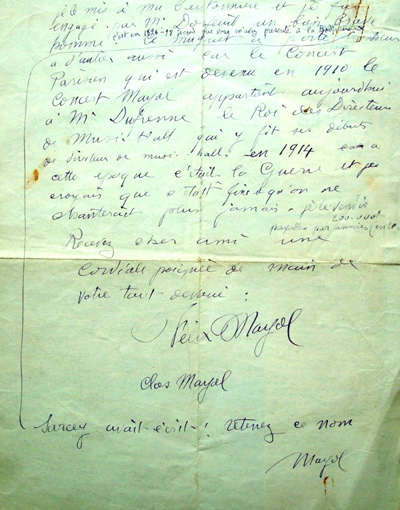 je le mis à ma boutonnière et je fus
engagé par Mr un brave
homme
à d'autre aussi car le Concert
Parisien qui est devenu en 1910 le
Concert Mayol appartient aujourd'hui
à Mr Dufrenne le Roi des Directeurs
de Music-Hall qui y fit ses débuts
de directeur de music hall. en 1914 a
cette epoque c'était la Guerre et je
croyais que c'était fini qu'on ne
chanterait plus jamais. je le vendis
200.000f
payables par
Recevez cher ami une
cordiale poignée de main de
votre tout devoué :
Félix Mayol
Clos Mayol
Sarcey m'ait écrit ! retenez ce nom
Mayol